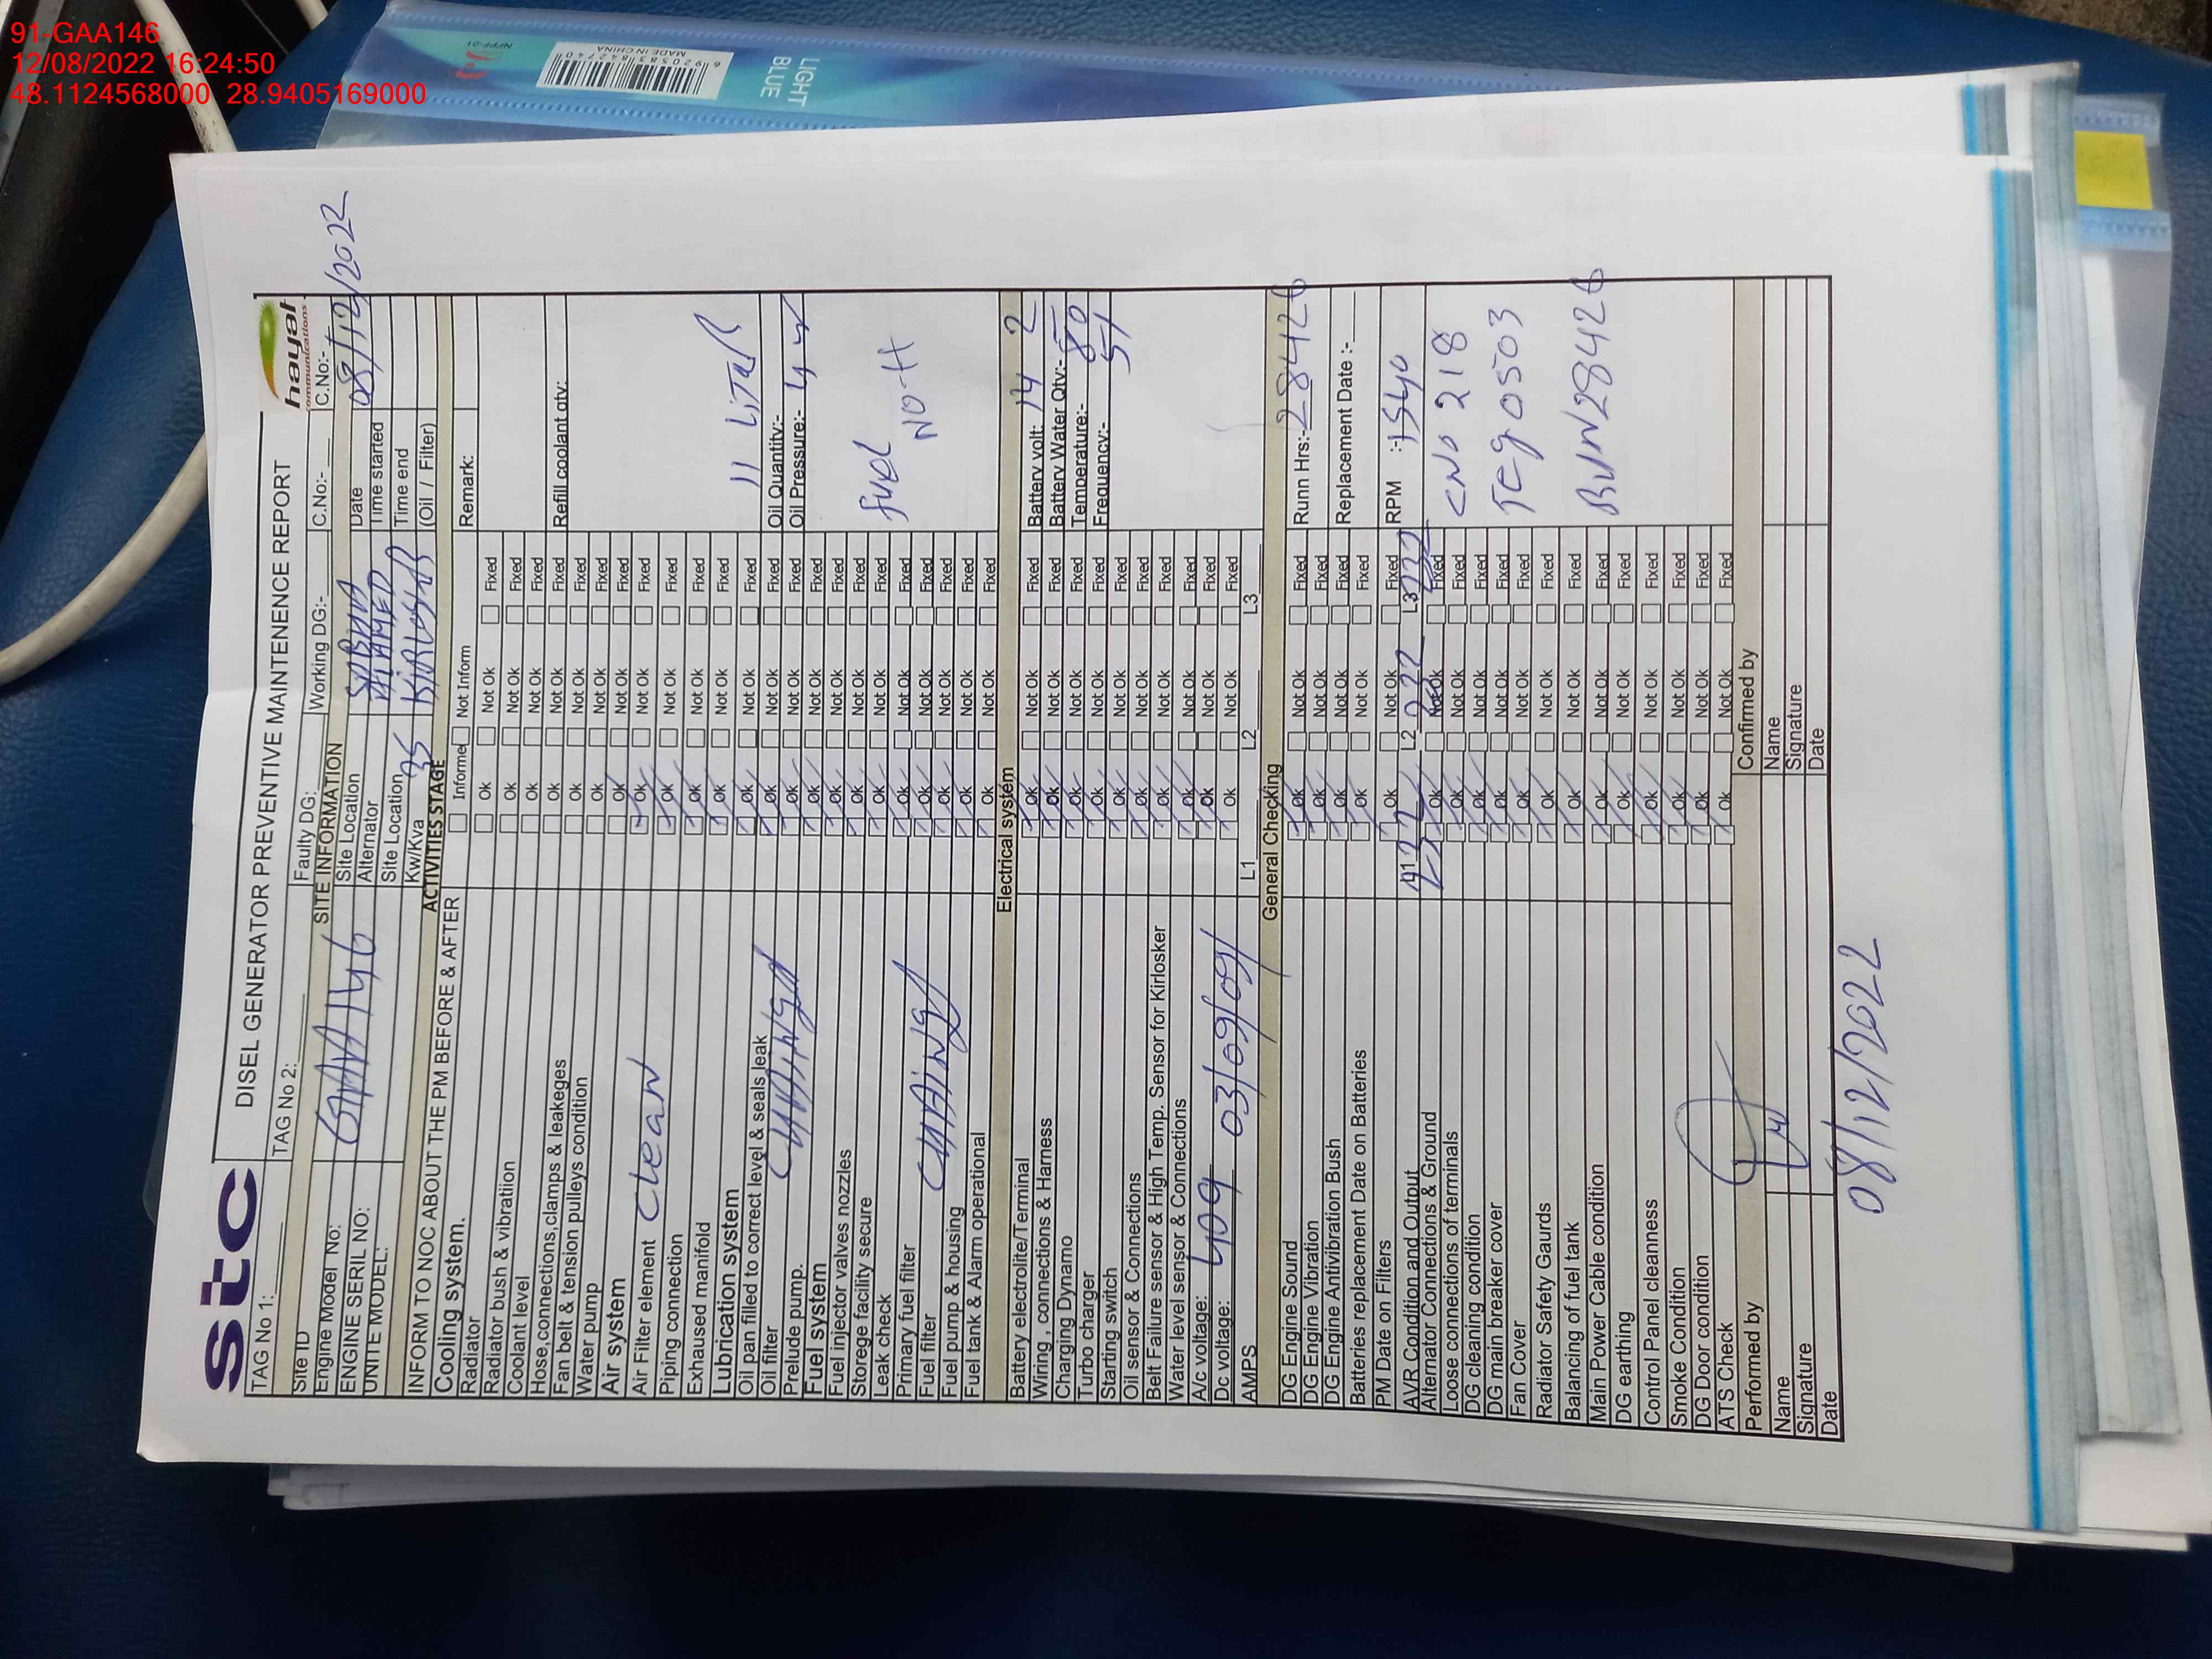 91-GAA146
12/08/2022 16:24:50
48.1124568000 28.9405169000
LIGHT
BLUE
MADE IN CHINA
NFPF-01
stc
DISEL GENERATOR PREVENTIVE MAINTENENCE REPORT
hayat
communications
TAG No 1:
TAG No 2:
Faulty DG:
Working DG:-
C.No:-
C.No:-
SITE INFORMATION
Site ID
GAA146
Site Location
Date 08/12/2022
Engine Model No:
Alternator
Time started
ENGINE SERIL NO:
Site Location
Time end
UNITE MODEL:
Kw/Kva 35
(Oil / Filter)
ACTIVITIES STAGE
INFORM TO NOC ABOUT THE PM BEFORE & AFTER Informe Not Inform Remark:
Cooling system.
Radiator Ok Not Ok Fixed
Radiator bush & vibratiion Ok Not Ok Fixed
Coolant level Ok Not Ok Fixed
Hose,connections,clamps & leakeges Ok Not Ok Fixed Refill coolant qty:
Fan belt & tension pulleys condition Ok Not Ok Fixed
Water pump Ok Not Ok Fixed
Air system Ok Not Ok Fixed
Air Filter element Clean Ok Not Ok Fixed
Piping connection Ok Not Ok Fixed
Exhaused manifold Ok Not Ok Fixed
Lubrication system Ok Not Ok Fixed
11 LITER
Oil pan filled to correct level & seals leak Ok Not Ok Fixed
Oil filter Ok Not Ok Fixed Oil Quantity:-
Prelude pump. Ok Not Ok Fixed Oil Pressure:-
Fuel system Ok Not Ok Fixed
Fuel injector valves nozzles Ok Not Ok Fixed
Storege facility secure Ok Not Ok Fixed
Leak check Ok Not Ok Fixed
Fuel
Primary fuel filter Ok Not Ok Fixed
Fuel filter Ok Not Ok Fixed
Fuel pump & housing Ok Not Ok Fixed
Fuel tank & Alarm operational Ok Not Ok Fixed
Electrical system
Battery electrolite/Terminal Ok Not Ok Fixed Battery volt: 14 2
Wiring , connections & Harness Ok Not Ok Fixed Battery Water Qty:-
Charging Dynamo Ok Not Ok Fixed Temperature:- 80
Turbo charger Ok Not Ok Fixed Frequency:- 51
Starting switch Ok Not Ok Fixed
Oil sensor & Connections Ok Not Ok Fixed
Belt Failure sensor & High Temp. Sensor for Kirlosker Ok Not Ok Fixed
Water level sensor & Connections Ok Not Ok Fixed
A/c voltage: 409 Ok Not Ok Fixed
Dc voltage: 03/09/09/ Ok Not Ok Fixed
AMPS L1 L2 L3
General Checking
DG Engine Sound Ok Not Ok Fixed Runn Hrs:- 28426
DG Engine Vibration Ok Not Ok Fixed
DG Engine Antivibration Bush Ok Not Ok Fixed Replacement Date :-
Batteries replacement Date on Batteries Ok Not Ok Fixed
PM Date on Filters Ok Not Ok Fixed RPM :- 1540
AVR Condition and Output L2 L3
Alternator Connections & Ground Ok Fixed
Loose connections of terminals Ok Not Ok Fixed CNO 218
DG cleaning condition Ok Not Ok Fixed
DG main breaker cover Ok Not Ok Fixed Teg 0503
Fan Cover Ok Not Ok Fixed
Radiator Safety Gaurds Ok Not Ok Fixed
Balancing of fuel tank Ok Not Ok Fixed
Main Power Cable condition Ok Not Ok Fixed RUN 28426
DG earthing Ok Not Ok Fixed
Control Panel cleanness Ok Not Ok Fixed
Smoke Condition Ok Not Ok Fixed
DG Door condition Ok Not Ok Fixed
ATS Check Ok Not Ok Fixed
Performed by Confirmed by
Name Name
Signature Signature
Date Date
08/12/2022